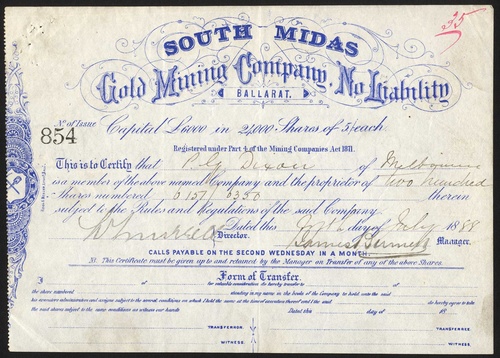 35
SOUTH MIDAS
Gold Mining Company, No Liability
BALLARAT.
No. of Issue
854
Capital £6000 in 24,000 Shares of 5/ each
Registered under Part 2 of the Mining Companies Act 1871.
This is to Certify that P G Dixon of Melbourne
is a member of the above named Company and the proprietor of two hundred
Shares numbered 6151 6350 therein
subject to the Rules and Regulations of the said Company.
Dated this 27th day of July 1888
Director. Manager.
CALLS PAYABLE ON THE SECOND WEDNESDAY IN A MONTH.
This Certificate must be given up to and retained by the Manager on Transfer of any of the above Shares.
Form of Transfer.
I for valuable consideration do hereby transfer to
the shares numbered standing in my name in the books of the Company to hold unto the said
his executors administrators and assigns subject to the several conditions on which I held the same at the time of execution thereof and I the said do hereby agree to take
the said shares subject to the same conditions as witness our hands Dated this day of 18
TRANSFERROR. TRANSFERREE.
WITNESS. WITNESS.